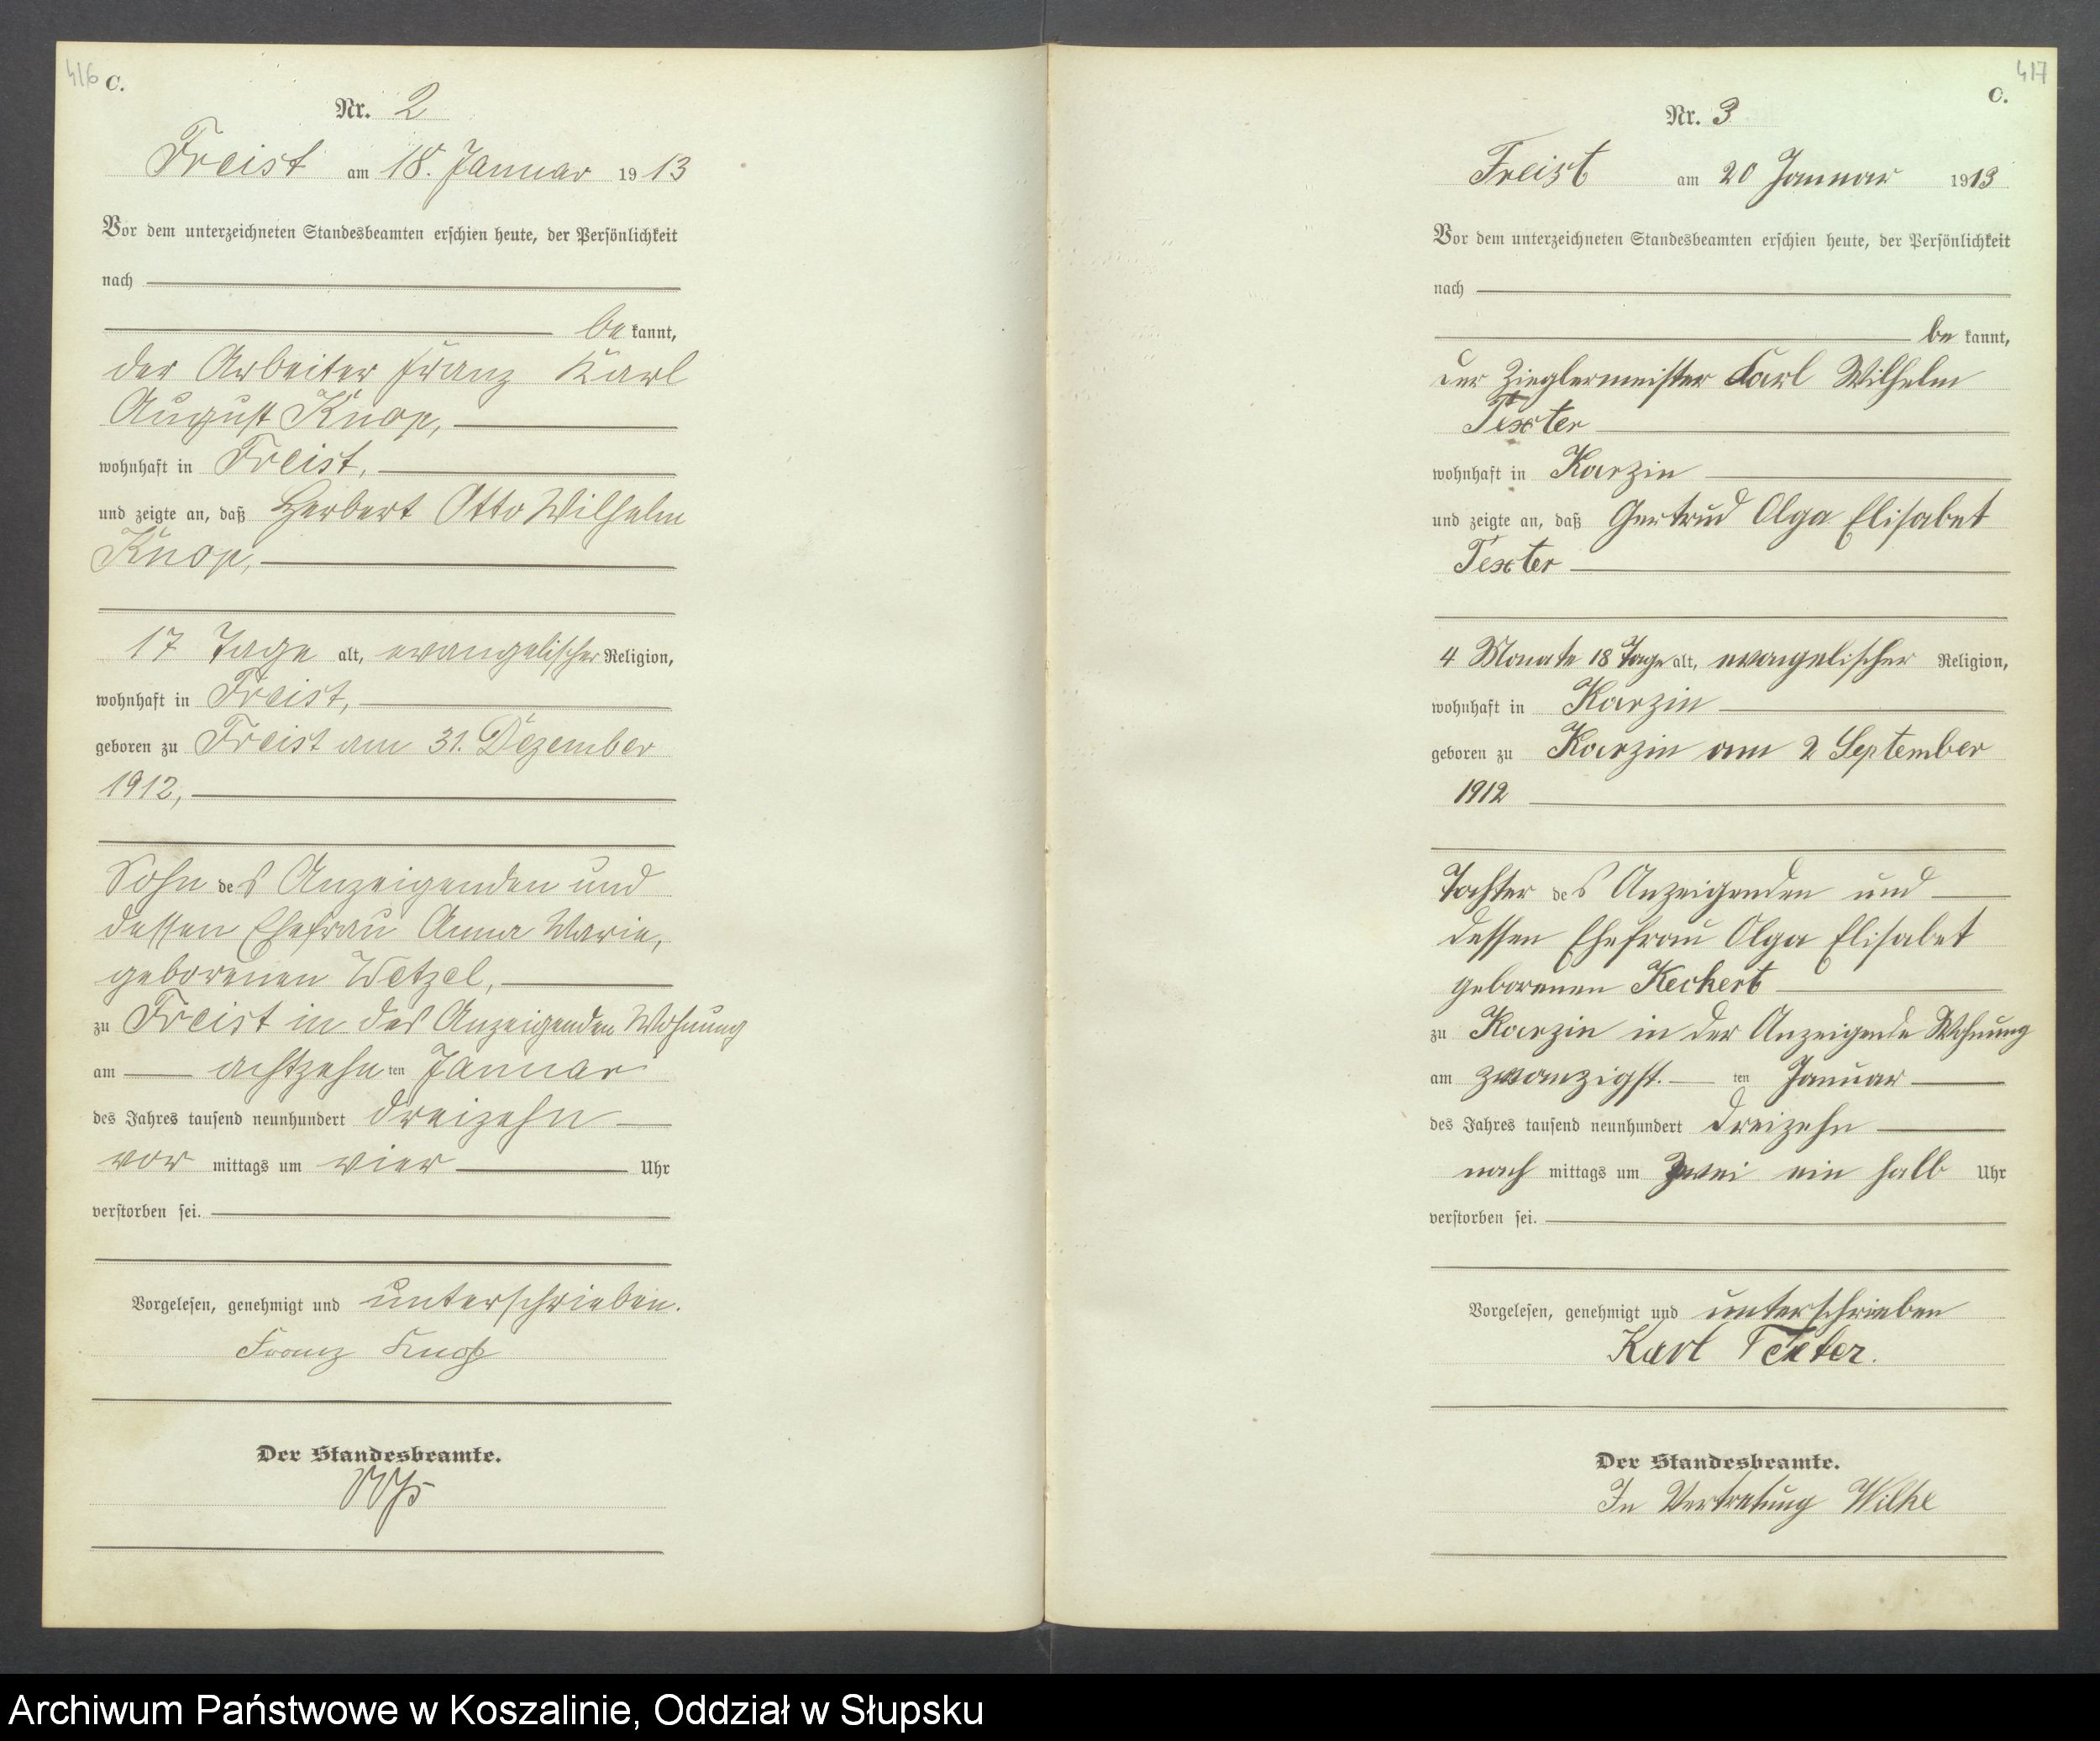 416 C.
Nr. 2
Freist am 18. Januar 1913
Vor dem unterzeichneten Standesbeamten erschien heute, der Persönlichkeit
nach
be kannt,
der Arbeiter Franz Karl
August Knop,
wohnhaft in Freist,
und zeigte an, daß Herbert Otto Wilhelm
Knop,
17 Tage alt, evangelischer Religion,
wohnhaft in Freist,
geboren zu Freist am 31. Dezember
1912,
Sohn des Anzeigenden und
dessen Ehefrau Anna Marie,
geborenen Wetzel,
zu Freist in des Anzeigenden Wohnung
am achtzehn ten Januar
des Jahres tausend neunhundert dreizehn
vor mittags um vier Uhr
verstorben sei.
Vorgelesen, genehmigt und unterschrieben.
Franz Knop
Der Standesbeamte.
417
C.
Nr. 3
Freist am 20 Januar 1913
Vor dem unterzeichneten Standesbeamten erschien heute, der Persönlichkeit
nach
be kannt,
der Zieglermeister Karl Wilhelm
Texter
wohnhaft in Karzin
und zeigte an, daß Gertrud Olga Elisabet
Texter
4 Monate 18 Tage alt, evangelischer Religion,
wohnhaft in Karzin
geboren zu Karzin am 2 September
1912
Tochter des Anzeigenden und
dessen Ehefrau Olga Elisabet
geborenen Keckert
zu Karzin in der Anzeigende Wohnung
am zwanzigst. ten Januar
des Jahres tausend neunhundert dreizehn
nach mittags um zwei ein halb Uhr
verstorben sei.
Vorgelesen, genehmigt und unterschrieben
Karl Texter.
Der Standesbeamte.
In Vertretung Wilke
Archiwum Państwowe w Koszalinie, Oddział w Słupsku